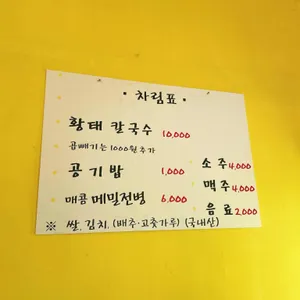 • 차림표 •
• 황태 칼국수 10,000
곱빼기는 1000원 추가
• 공기밥 1,000
• 소주 4,000
• 맥주 4,000
• 매콤 메밀전병 6,000
• 음료 2,000
※ 쌀, 김치, (배추·고춧가루) (국내산)